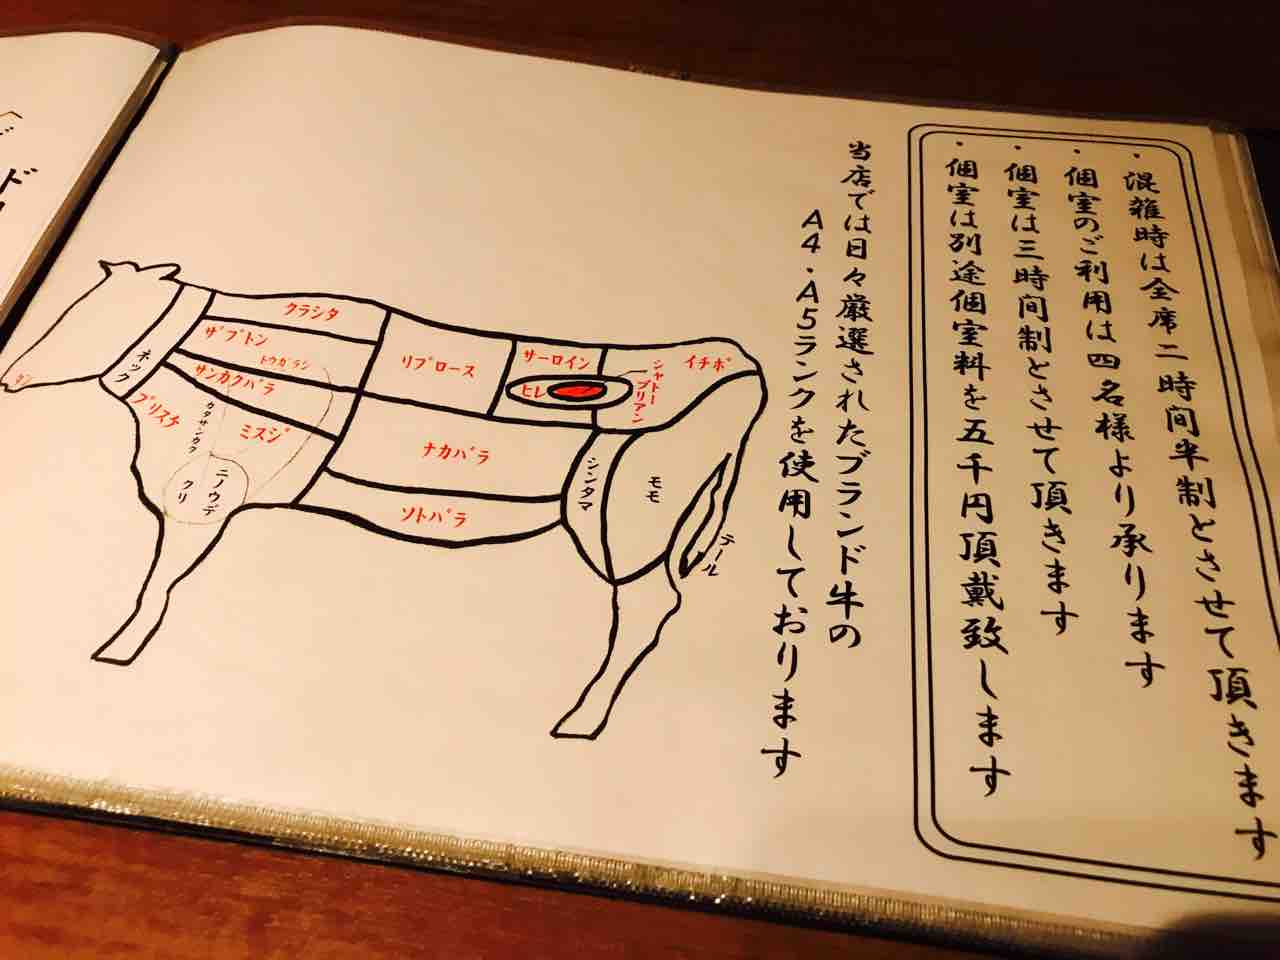 ・混雑時は全席二時間半制とさせて頂きます
・個室のご利用は四名様より承ります
・個室は三時間制とさせて頂きます
・個室は別途個室料を五千円頂戴致します
当店では日々厳選されたブランド牛の
A4・A5ランクを使用しております
タン
ネック
クラシタ
ザブトン
トウガラシ
サンカクバラ
ブリスケ
カタサンカク
ミスジ
ニノウデ
クリ
リブロース
サーロイン
ヒレ
シャトー
ブリアン
イチボ
ナカバラ
ソトバラ
シンタマ
モモ
テール